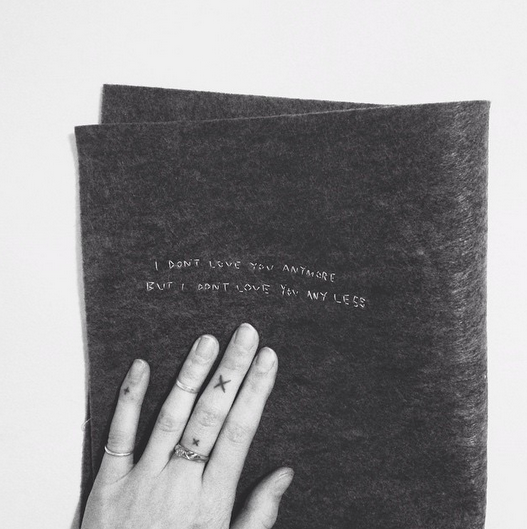 I DONT LOVE YOU ANYMORE
BUT I DONT LOVE YOU ANY LESS